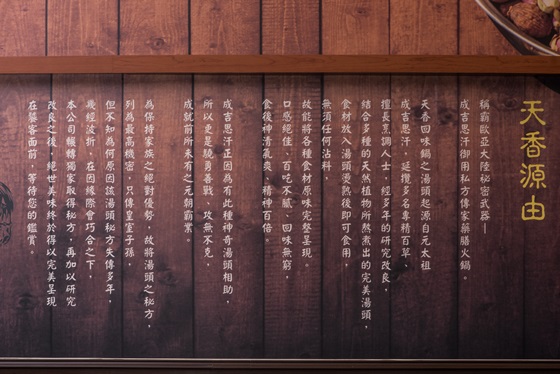 天香源由
稱霸歐亞大陸秘密武器—
成吉思汗御用私方傳家藥膳火鍋。
天香回味鍋之湯頭起源自元太祖
成吉思汗,延攬多名專精百草、
擅長烹調人士,經多年的研究改良,
結合多種的天然植物所熬煮出的完美湯頭,
食材放入湯頭燙熟後即可食用,
無須任何沾料,
故能將各種食材原味完整呈現。
口感絕佳、百吃不膩、回味無窮,
食後神清氣爽、精神百倍。
成吉思汗正因為有此種神奇湯頭相助,
所以更是驍勇善戰、攻無不克,
成就前所未有之元朝霸業。
為保持家族之絕對優勢,故將湯頭之秘方,
列為最高機密,只傳皇室子孫,
但不知為何原因該湯頭秘方失傳多年,
幾經波折,在因緣際會巧合之下,
本公司輾轉獨家取得秘方,再加以研究
改良之後,絕世美味終於得以完美呈現
在饕客面前,等待您的鑑賞。